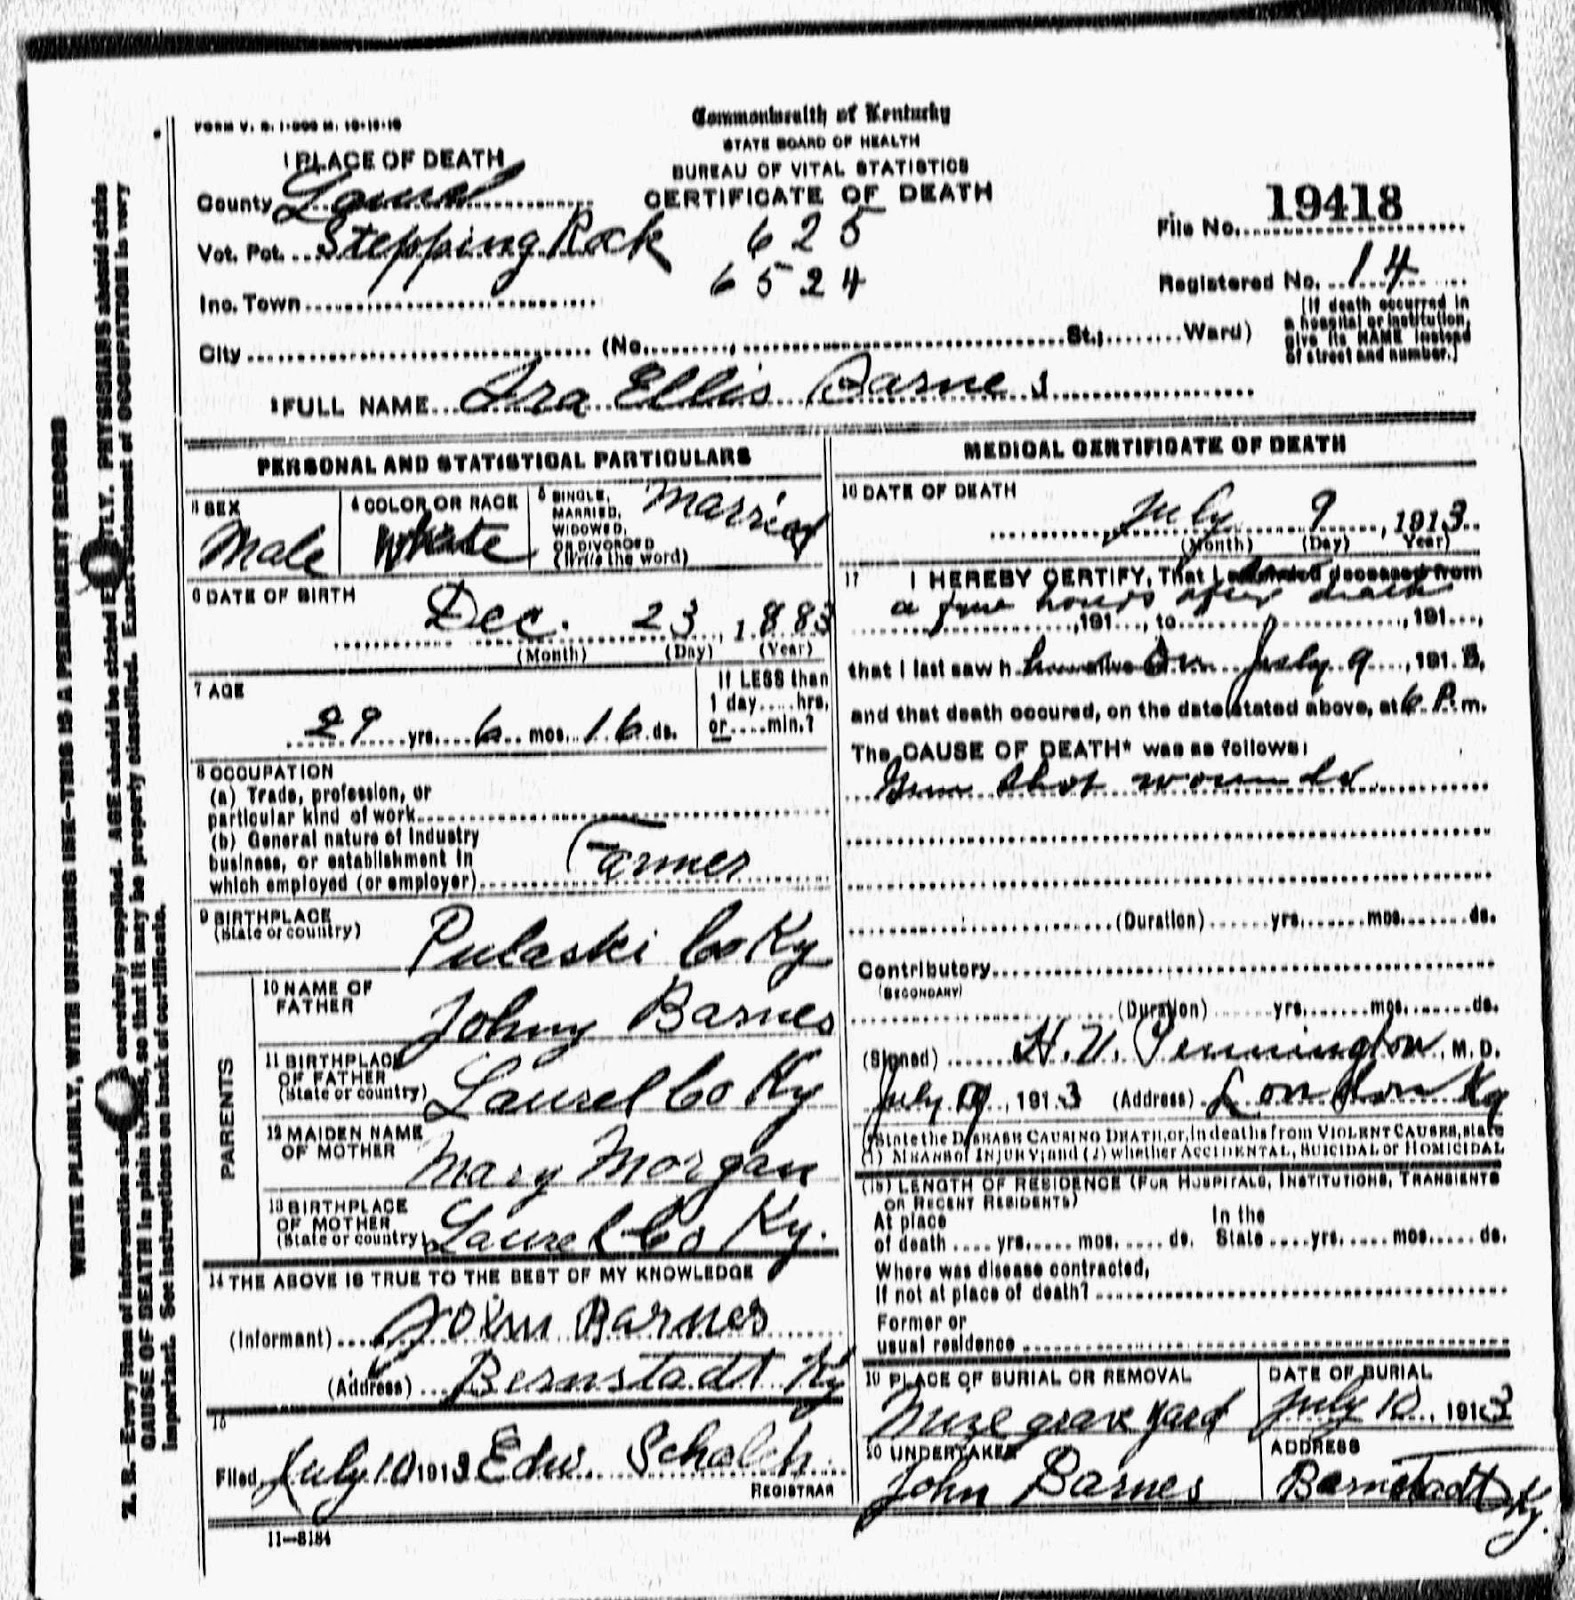 FORM V. S. 1-500 M. 10-10-10
Commonwealth of Kentucky
STATE BOARD OF HEALTH
BUREAU OF VITAL STATISTICS
CERTIFICATE OF DEATH
1 PLACE OF DEATH
County Laurel
Vot. Pct. Stepping Rock
625
6524
Inc. Town
City (No. St.; Ward)
File No. 19418
Registered No. 14
(If death occurred in
a hospital or institution,
give its NAME instead
of street and number.)
2 FULL NAME Ira Ellis Barnes
PERSONAL AND STATISTICAL PARTICULARS
3 SEX
Male
4 COLOR OR RACE
White
5 SINGLE,
MARRIED,
WIDOWED,
OR DIVORCED
(Write the word)
Married
6 DATE OF BIRTH
Dec. 23, 1883
(Month) (Day) (Year)
7 AGE
29 yrs. 6 mos. 16 ds.
If LESS than
1 day.....hrs.
or....min.?
8 OCCUPATION
(a) Trade, profession, or
particular kind of work
(b) General nature of industry
business, or establishment in
which employed (or employer)
Farmer
9 BIRTHPLACE
(State or country)
Pulaski Co Ky
PARENTS
10 NAME OF
FATHER
Johny Barnes
11 BIRTHPLACE
OF FATHER
(State or country)
Laurel Co Ky
12 MAIDEN NAME
OF MOTHER
Mary Morgan
13 BIRTHPLACE
OF MOTHER
(State or country)
Laurel Co Ky.
14 THE ABOVE IS TRUE TO THE BEST OF MY KNOWLEDGE
(Informant) John Barnes
(Address) Bernstadt Ky
15
Filed July 10 1913 Edw. Schalch
REGISTRAR
11—8184
MEDICAL CERTIFICATE OF DEATH
16 DATE OF DEATH
July 9, 1913
(Month) (Day) (Year)
17 I HEREBY CERTIFY, That I attended deceased from
a few hours after death
, 191..., to , 191...,
that I last saw h im alive on July 9, 1913,
and that death occured, on the date stated above, at 6 P. m.
The CAUSE OF DEATH* was as follows:
Gun shot wounds
(Duration) yrs. mos. ds.
Contributory
(SECONDARY)
(Duration) yrs. mos. ds.
(Signed) H. V. Pennington, M. D.
July 9, 1913 (Address) London Ky
*State the DISEASE CAUSING DEATH, or, in deaths from VIOLENT CAUSES, state
(1) MEANS of INJURY; and (2) whether ACCIDENTAL, SUICIDAL or HOMICIDAL
(18) LENGTH OF RESIDENCE (FOR HOSPITALS, INSTITUTIONS, TRANSIENTS
OR RECENT RESIDENTS)
At place In the
of death .... yrs..... mos..... ds. State .... yrs..... mos..... ds.
Where was disease contracted,
if not at place of death?
Former or
usual residence
19 PLACE OF BURIAL OR REMOVAL
grave yard
DATE OF BURIAL
July 10, 1913
20 UNDERTAKER
John Barnes
ADDRESS
Bernstadt Ky.
WRITE PLAINLY, WITH UNFADING INK—THIS IS A PERMANENT RECORD
N. B. Every item of information should be carefully supplied. AGE should be stated EXACTLY. PHYSICIANS should state
CAUSE OF DEATH in plain terms, so that it may be properly classified. Exact statement of OCCUPATION is very
important. See instructions on back of certificate.